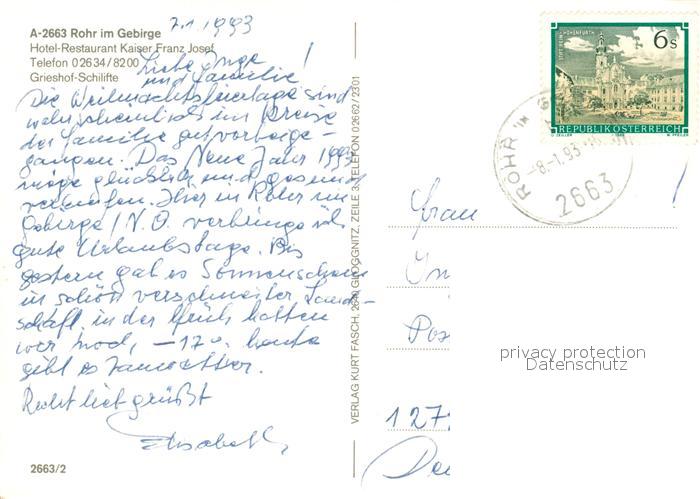 7.1.1993
A-2663 Rohr im Gebirge
Hotel-Restaurant Kaiser Franz Josef
Telefon 02634/8200
Grieshof-Schilfte
Liebe Inge !
und Familie
Die Weihnachtsfeiertage sind
wahrscheinlich im Kreise
der Familie gut vorbeige-
gangen. Das Neue Jahr 1993
möge glücklich und gesund
verlaufen. Hier in Rohr im
Gebirge / N.Ö. verbringe ich
gute Urlaubstage. Bis
gestern gab es Sonnenschein
in schön verschneiter Land-
schaft, in der Früh hatten
wir noch, -17°. heute
gibt es Tauwetter.
Recht lieb grüßt
Elisabeth
2663/2
VERLAG KURT FASCH, 2640 GLOGGNITZ, ZEILE 3, TELEFON 02662/2301
STIFT REIN-HOHENFURTH
6s
REPUBLIK ÖSTERREICH
ROHR IM G
-8.-1.93
2663
Frau !
In
Pos
127
privacy protection
Datenschutz